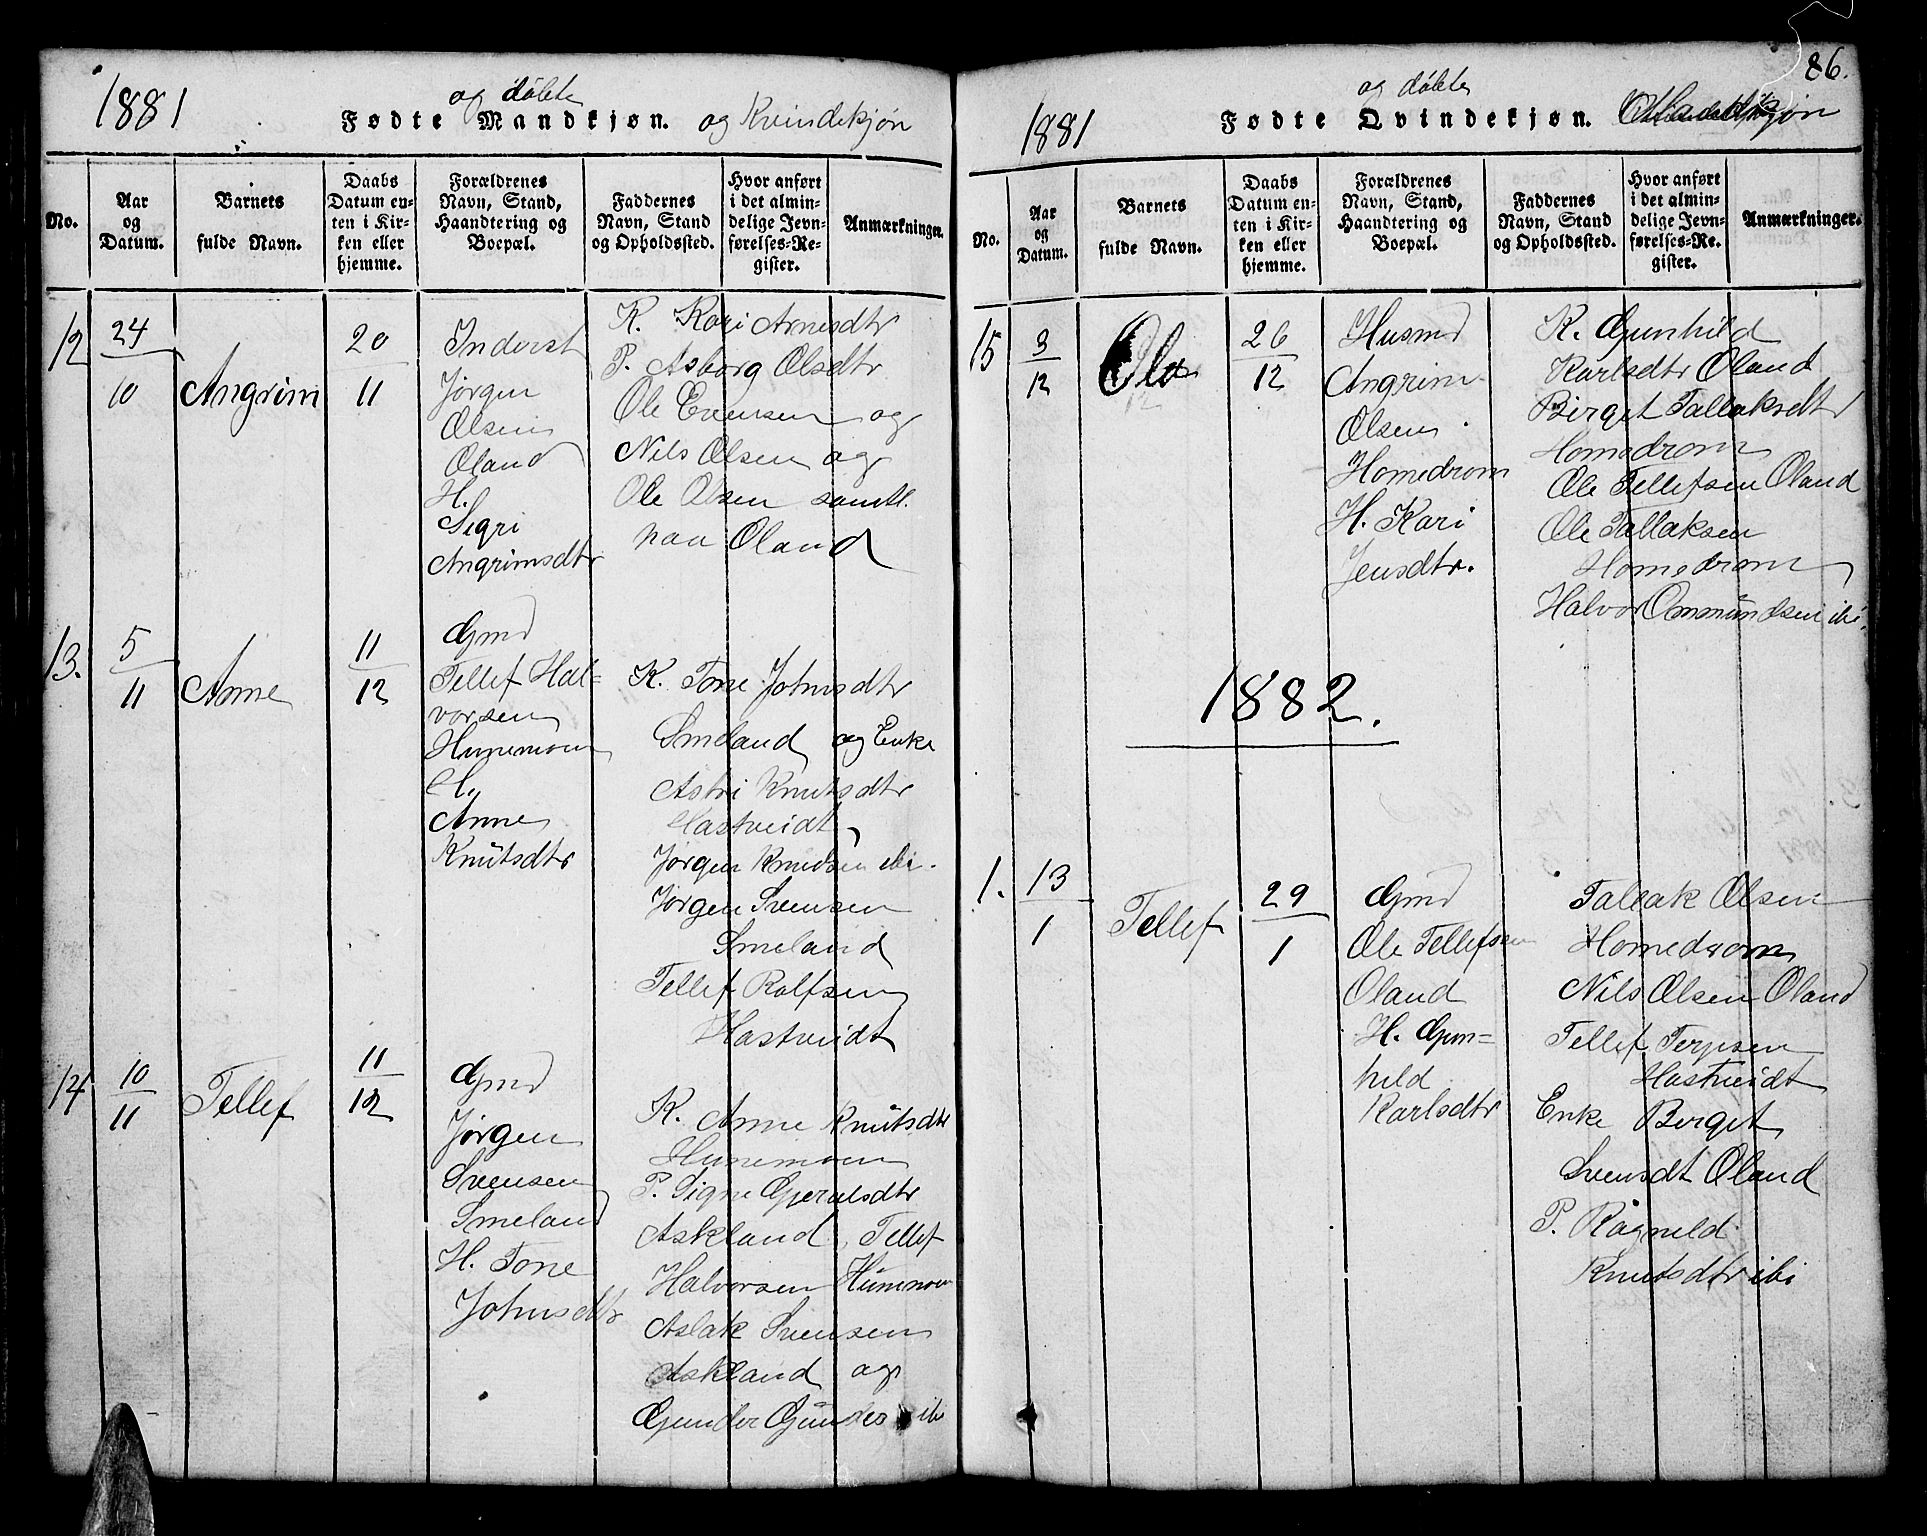 1881
og döbte
Fødte Mandkjøn. og Kvindekjøn
No.
Aar og Datum.
Barnets fulde Navn.
Daabs Datum enten i Kirken eller hjemme.
Forældrenes Navn, Stand, Haandtering og Boepæl.
Faddernes Navn, Stand og Opholdssted.
Hvor anført i det almindelige Jevnførelses-Register.
Anmærkninger.
12
24/10
Angrim
20/11
Inderst
Jørgen
Olsen
Oland
H.
Sigri
Angrimsdtr
K. Kari Arnesdtr
P. Asborg Olsdtr
Ole Evensen og
Nils Olsen og
Ole Olsen samtl.
paa Oland
13.
5/11
Anne
11/12
Gmd
Tellef Hal=
vorsen
Hunemoen
H.
Anne
Knutsdtr
K. Tone Johnsdtr
Smeland og Enke
Astri Knutsdtr
Hastveidt
Jørgen Knudsen ibi.
Jørgen Svensen
Smeland
Tellef Rolfsen
Hastveidt
14
10/11
Tellef
11/12
Gmd
Jørgen
Svensen
Smeland
H. Tone
Johnsdtr
K. Anne Knutsdtr
Hunemoen
P. Signe Gjerulsdtr
Askland, Tellef
Halvorsen Hunemoen
Aslak Svensen
Askland og
Gunder Gunders ibi
86.
1881
og döbte
Fødte Qvindekjøn.
No.
Aar og Datum.
Barnets fulde Navn.
Daabs Datum enten i Kirken eller hjemme.
Forældrenes Navn, Stand, Haandtering og Boepæl.
Faddernes Navn, Stand og Opholdssted.
Hvor anført i det almindelige Jevnførelses-Re. gister.
Anmærkninger.
15
3/12
Ole
26/12
Husmd
Angrim
Olsen
Homedrom
H. Kari
Jensdtr.
K. Gunhild
Karlsdtr Oland
Birget Tallaksdtr
Homedrom
Ole Tellefsen Oland
Ole Tallaksen
Homedrom
Halvor Ommundsen ibi.
1882.
1.
13/1
Tellef
29/1
Gmd
Ole Tellefsen
Oland
H. Gun=
hild
Karlsdtr
Tallak Olsen
Homedrom
Nils Olsen Oland
Tellef Terjesen
Hastveidt
Enke Berget
Svensdt Oland
P. Ragnild
Knutsdtr ibi